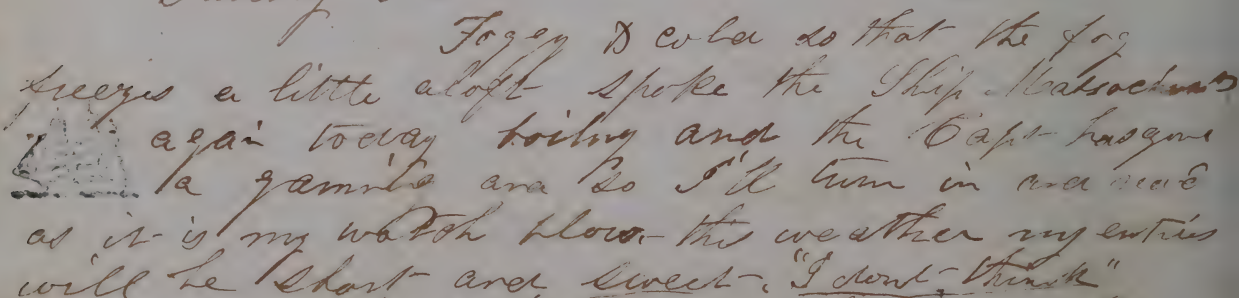 Fogey & cold so that the fog
freezes a little aloft spoke the Ship Massachusetts
again today boiling and the Capt has gone
a gamnig and so I'll turn in and read
as it is my watch blow - this weather my entries
will be short and sweet. "I dont think"